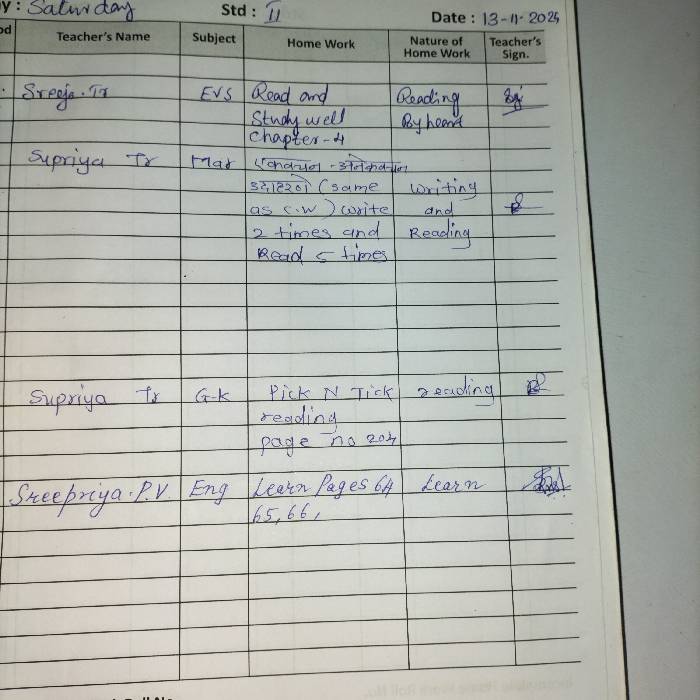 y : Saturday Std : II Date : 13-11-2025
od Teacher's Name Subject Home Work Nature of Home Work Teacher's Sign.
Sreeja.Tr EVS Read and Reading
Study well By heart
Chapter-4
Supriya Tr Mar एकवचन-अनेकवचन
उदाहरणे (same writing
as C.W) write and
2 times and Reading
Read 5 times
Supriya Tr G-k Pick N Tick reading
reading
page no 204
Sreepriya.P.V. Eng Learn Pages 64 Learn
65,66,